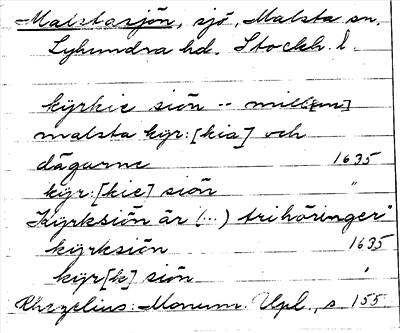 Malstasjön, sjö, Malsta sn,
Lyhundra hd. Stockh. l.
kyrkie siön -- mill[en]
malsta kyr:[kia] och
dågarne 1635
kyr:[kie] siön "
Kyrksiön är (...) trihöringer"
kyrksiön 1635
kyr[k] siön "
Rhezelius: Monum. Upl., s 155